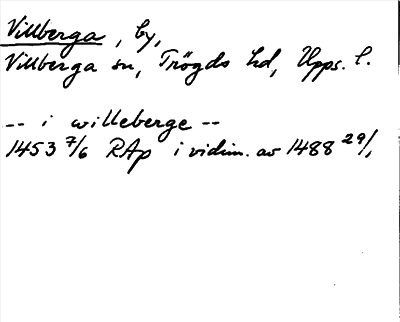 Villberga, by,
Villberga sn, Trögds hd, Upps. l.
-- i willeberge --
1453 7/6 RAp i vidim. av 1488 29/1